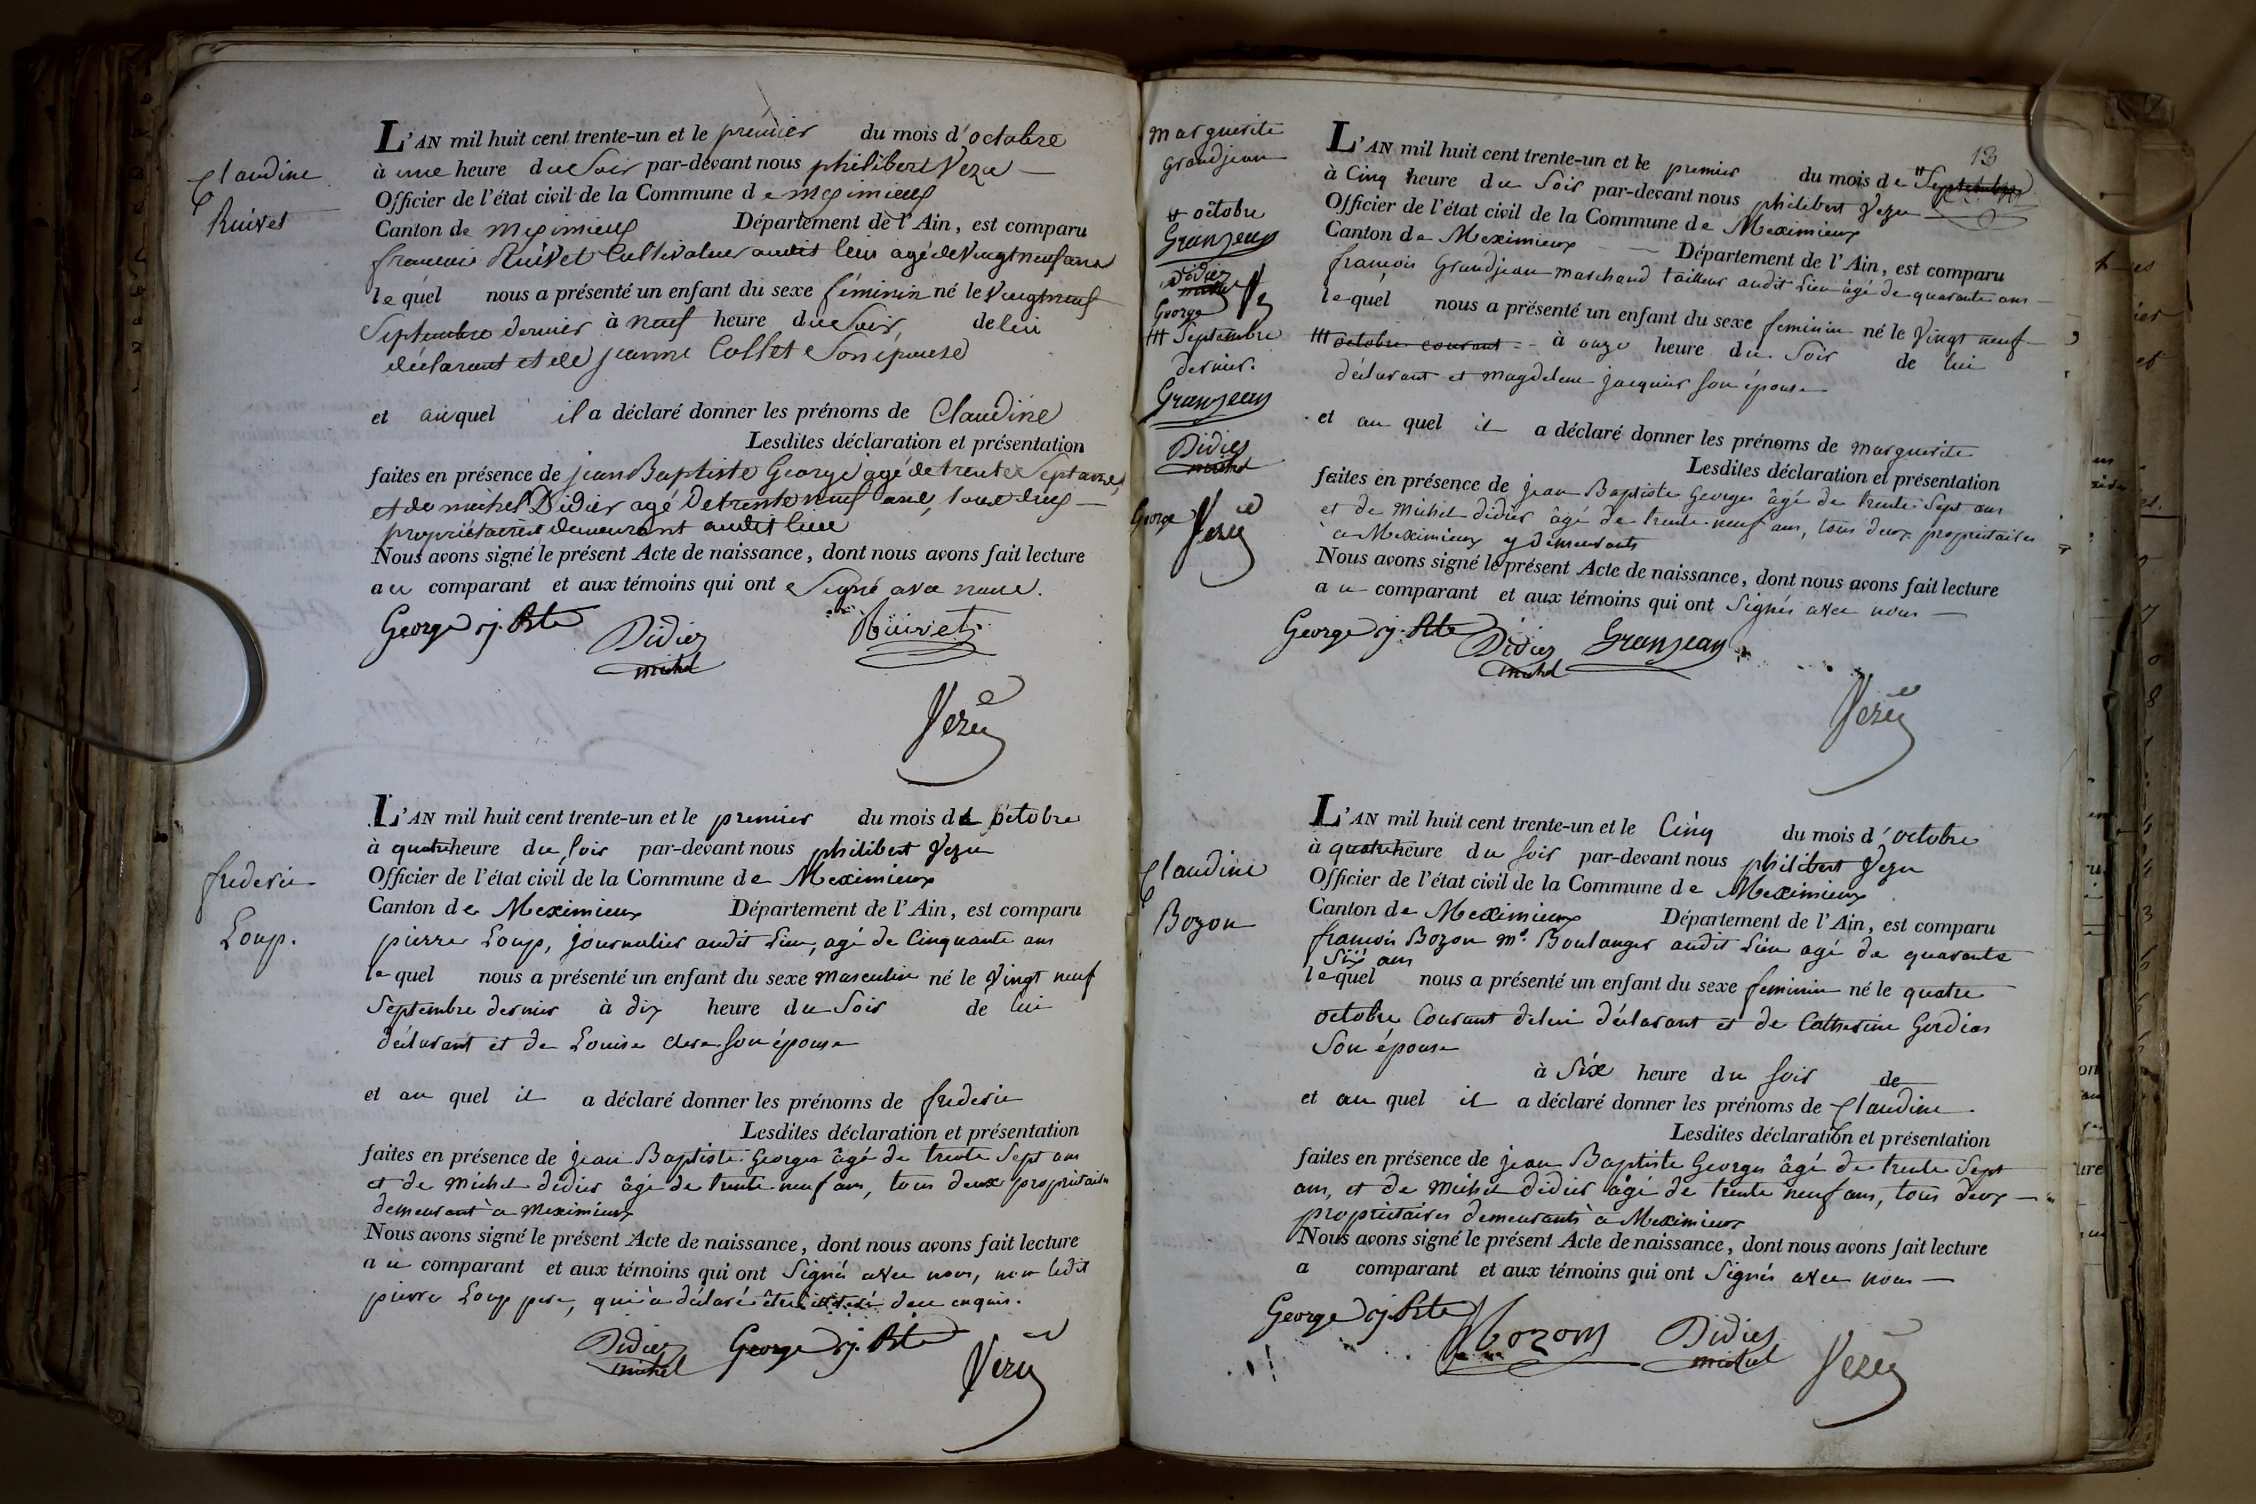 Claudine
Ruivet
L'AN mil huit cent trente-un et le premier du mois d'octobre
à une heure du Soir par-devant nous philibert Vezu
Officier de l'état civil de la Commune de meximieux
Canton de meximieux Département de l'Ain, est comparu
francois Ruivet Cultivateur audit lieu agé de Vingt neuf ans
lequel nous a présenté un enfant du sexe féminin né le Vingt neuf
Septembre dernier à neuf heure du Soir, de lui
déclarant et de jeanne Collet Son épouse
et auquel il a déclaré donner les prénoms de Claudine
Lesdites déclaration et présentation
faites en présence de jean Baptiste George agé de trente Sept ans,
et de michel Didier agé de trente neuf ans, tous deux
propriétaires demeurant audit lieu
Nous avons signé le présent Acte de naissance, dont nous avons fait lecture
au comparant et aux témoins qui ont Signé avec nous.
George j. Bte Didier michel Ruivet
Vezu
frederic
Loup.
L'AN mil huit cent trente-un et le premier du mois d octobre
à quatre heure du Soir par-devant nous philibert Vezu
Officier de l'état civil de la Commune de Meximieux
Canton de Meximieux Département de l'Ain, est comparu
pierre Loup, journalier audit Lieu, agé de Cinquante ans
lequel nous a présenté un enfant du sexe masculin né le Vingt neuf
Septembre dernier à dix heure du Soir de lui
déclarant et de Louise son épouse
et au quel il a déclaré donner les prénoms de frederic
Lesdites déclaration et présentation
faites en présence de jean Baptiste Georges âgé de trente Sept ans
et de Michel didier âgé de trente neuf ans, tous deux propriétaires
demeurant à Meximieux
Nous avons signé le présent Acte de naissance, dont nous avons fait lecture
au comparant et aux témoins qui ont Signés avec nous, non ledit
pierre Loup pere, qui a déclaré être illitéré de ce enquis.
Didier michel George j. Bte Vezu
marguerite
grandjean
# octobre
Granjean
Didier
michel Ve
George
## Septembre
dernier.
Granjean
Didier
michel
George Vezu
13
L'AN mil huit cent trente-un et le premier du mois de # Septembre
à Cinq heure du Soir par-devant nous philibert Vezu
Officier de l'état civil de la Commune de Meximieux
Canton de Meximieux Département de l'Ain, est comparu
françois Grandjean marchand tailleur audit Lieu âgé de quarante ans
lequel nous a présenté un enfant du sexe feminin né le Vingt neuf
## octobre courant à onze heure du Soir de lui
déclarant et Magdeleine jacquier son épouse
et au quel il a déclaré donner les prénoms de marguerite
Lesdites déclaration et présentation
faites en présence de jean Baptiste Georges âgé de trente Sept ans
et de Michel didier âgé de trente neuf ans, tous deux propriétaires
à Meximieux y demeurants
Nous avons signé le présent Acte de naissance, dont nous avons fait lecture
au comparant et aux témoins qui ont Signés avec nous
George j. Bte Didier michel Granjean
Vezu
Claudine
Bozon
L'AN mil huit cent trente-un et le Cinq du mois d'octobre
à quatre heure du Soir par-devant nous philibert Vezu
Officier de l'état civil de la Commune de Meximieux
Canton de Meximieux Département de l'Ain, est comparu
francois Bozon Md. Boulanger audit Lieu agé de quarante
Six ans
lequel nous a présenté un enfant du sexe feminin né le quatre
octobre Courant de lui déclarant et de Catherine Gordian
Son épouse
à Six heure du Soir de
et au quel il a déclaré donner les prénoms de Claudine
Lesdites déclaration et présentation
faites en présence de jean Baptiste Georges âgé de trente Sept
ans, et de Michel didier âgé de trente neuf ans, tous deux
propriétaires demeurants à Meximieux
Nous avons signé le présent Acte de naissance, dont nous avons fait lecture
a comparant et aux témoins qui ont Signés avec nous
George j. Bte Bozon Didier michel Vezu